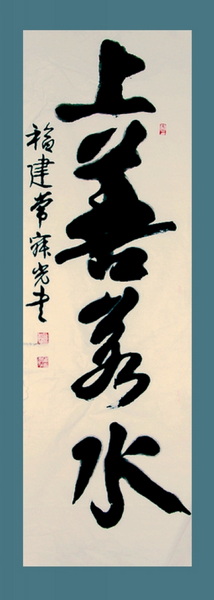 上善若水
福建常寂光书